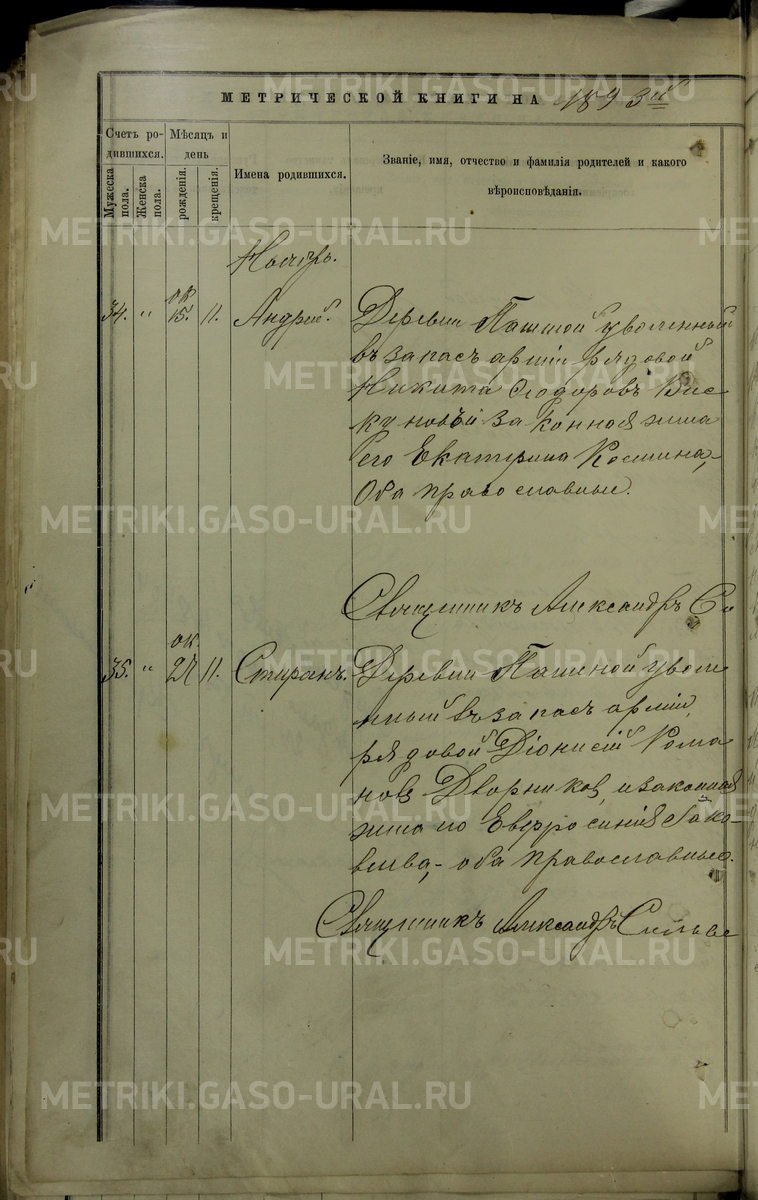 МЕТРИЧЕСКОЙ КНИГИ НА 1893й
Счетъ ро-
дившихся.
Мѣсяцъ и
день
Мужеска
пола.
Женска
пола.
рожденія.
крещенія.
Имена родившихся.
Званіе, имя, отчество и фамилія родителей и какого
вѣроисповѣданія.
Ноябрь.
34. " ок 15. 11. Андрей. Деревни Пашиной уволенный
въ запасъ арміи рядовой
Никита Ѳеодоровъ
законная жена
его Екатерина Космина,
оба православные.
Священникъ Александръ Си
35. " ок. 27 11. Стефанъ. Деревни Пашиной уволе
нный въ запасъ арміи
рядовой Діонисій Рома
новъ Дворниковъ, и законная
жена его Евфросинія Іако-
влева, оба православные.
Священникъ Александръ Сильве
METRIKI.GASO-URAL.RU